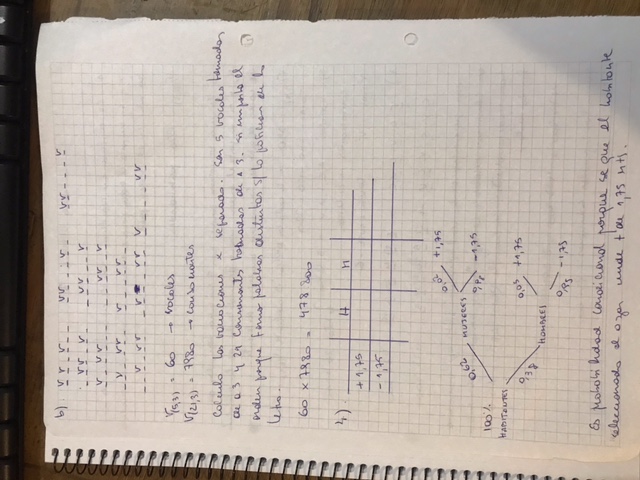 b) v v _ v _ _ v v _ _ v _ v v _ _ _ v
_ v v _ v _ _ v v _ _ v
v _ v v _ _ _ _ v v _ v
_ v _ v v _ v _ v v _ _
_ _ v _ v v _ v _ v v _ v _ _ _ v v
V(5,3) = 60 → vocales
V(21,3) = 7980 → consonantes
Calculo las variaciones x separado. Son 5 vocales tomadas
de a 3 y 21 consonantes tomadas de a 3. importa el
orden porque formo palabras distintas s/ la posición de la
letra.
60 x 7980 = 478 800
4)
H M
+ 1,75
- 1,75
0,02 +1,75
0,62 MUJERES
0,98 -1,75
100%
HABITANTES
0,38 0,05 +1,75
HOMBRES
0,95 -1,75
Es probabilidad condicional porque se que el habitante
seleccionado al azar mide + de 1,75 mts.